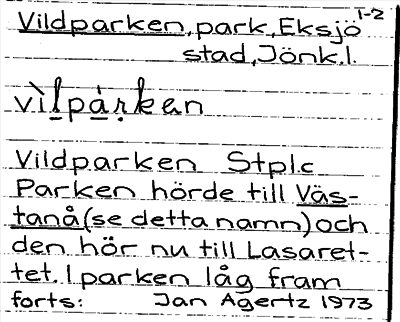 1-2
Vildparken, park, Eksjö
stad, Jönk.l.
vìlpàrken
Vildparken Stplc
Parken hörde till Väs-
tanå (se detta namn) och
den hör nu till Lasaret-
tet. I parken låg fram
forts: Jan Agertz 1973